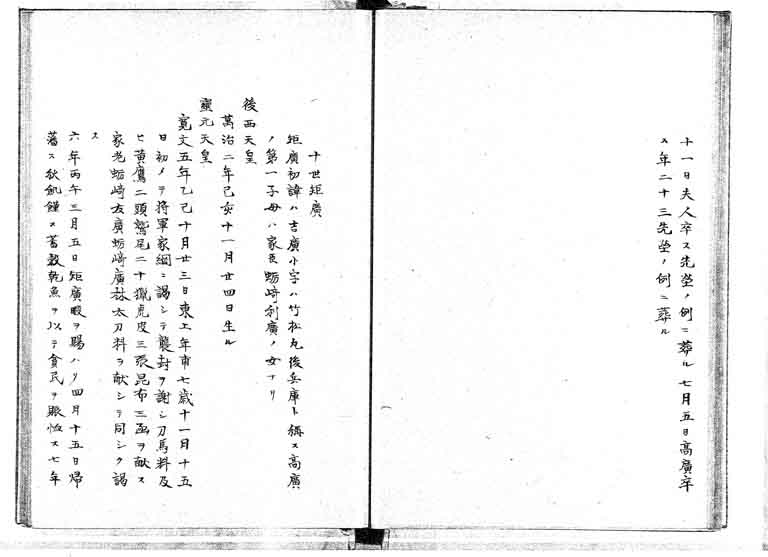 十一日夫人卒ス先塋ノ例ニ葬ル七月五日高廣卒
ス年二十三先塋ノ例ニ葬ル
十世矩廣
矩廣初諱ハ吉廣小字ハ竹松丸後兵庫ト稱ス高廣
ノ第一子母ハ家臣蛎崎利廣ノ女ナリ
後西天皇
萬治二年己亥十一月廿四日生ル
靈元天皇
寛文五年乙巳十月廿三日東上年甫七歳十一月十五
日初メテ將軍家綱ニ謁シテ襲封ヲ謝シ刀馬料及
ヒ黄鷹二頭鷲尾二十獵虎皮三張昆布三函ヲ献ス
家老蛎崎友廣蛎崎廣林太刀料ヲ献シテ同シク謁
ス
六年丙午三月五日矩廣暇ヲ賜ハリ四月十五日歸
藩ス秋飢饉ス蓄穀乾魚ヲ以テ貧民ヲ賑恤ス七年